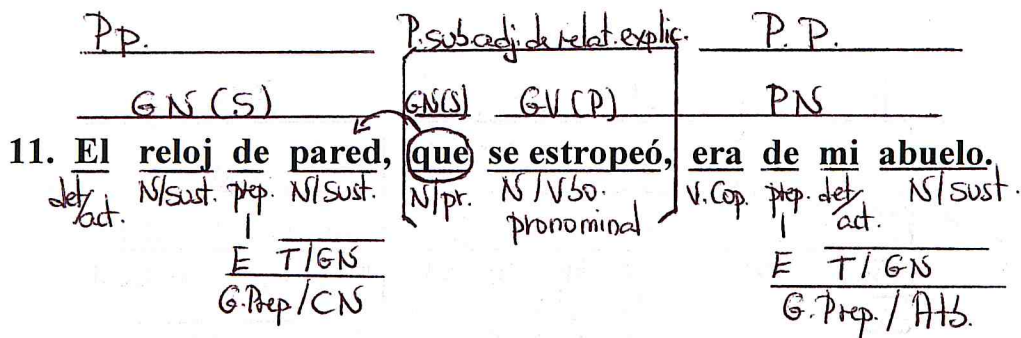 P.p. P.sub.adj.de relat.explic. P. P.
GN (S) GN(S) GV (P) PN
11. El reloj de pared, que se estropeó, era de mi abuelo.
det/act. N/sust. prep. N/sust. N/pr. N/Vbo. V.Cop. prep. det/act. N/sust.
pronominal
E T/GN E T/GN
G.Prep/CN G.Prep./Atb.